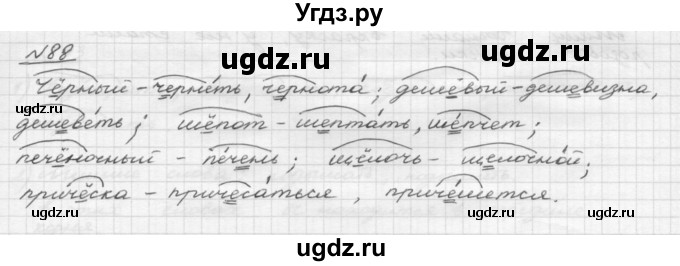 Угдз.ру
№88
ugdz.ru ugdz.ru
Чёрный – черне́ть, чернота́; дешёвый – дешевизна,
дешеве́ть; шёпот – шепта́ть, ше́пчет;
печёночный – пе́чень; щёлочь – щелочно́й;
причёска – причеса́ться, приче́шется.
ugdz.ru ugdz.ru
ugdz.ru